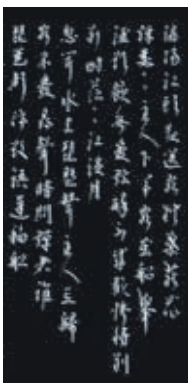 潯陽江頭夜送客楓葉荻花
秋瑟〻主人下馬客在船舉
酒欲飲無管絃醉不成歡慘將別
別時茫〻江浸月
忽聞水上琵琶聲主人忘歸
客不發尋聲暗問彈者誰
琵琶聲停欲語遲移船